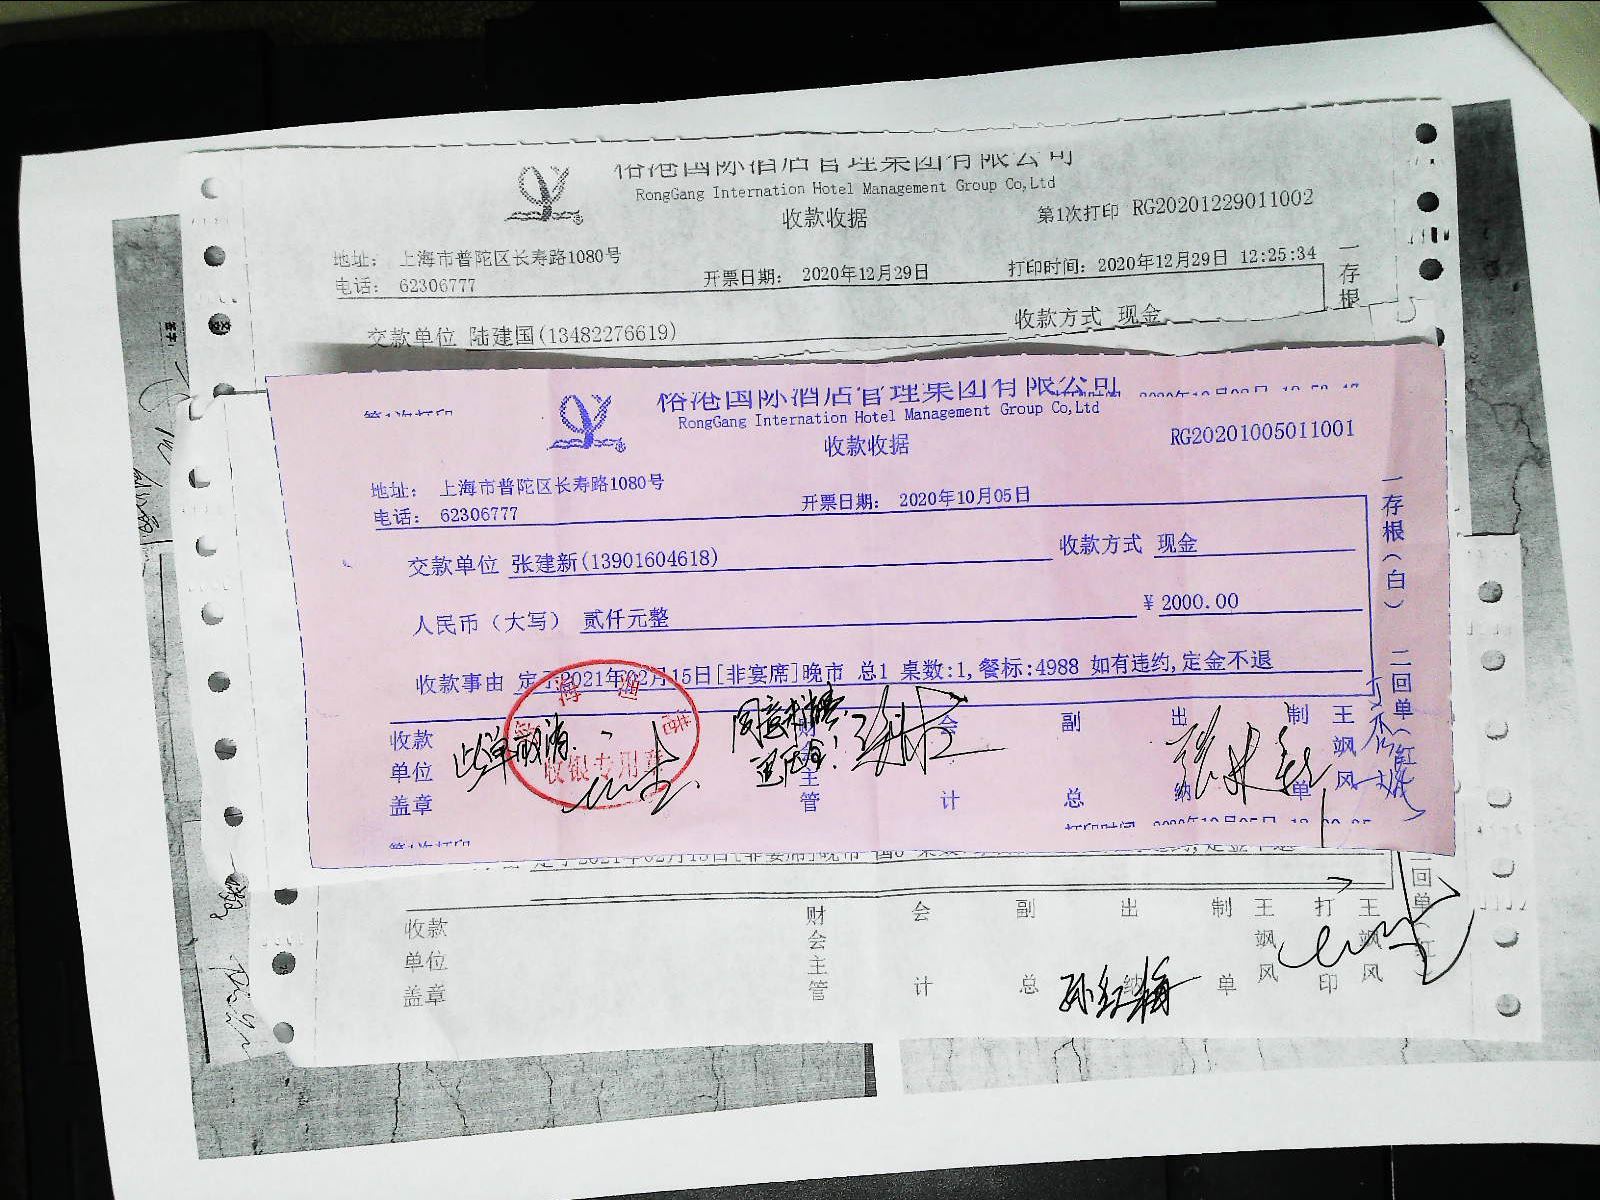 裕港国际酒店管理集团有限公司
RongGang Internation Hotel Management Group Co,Ltd
收款收据
第1次打印 RG20201229011002
地址： 上海市普陀区长寿路1080号
电话： 62306777
开票日期： 2020年12月29日
打印时间：2020年12月29日 12:25:34
一存根
交款单位 陆建国(13482276619)
收款方式 现金
第1次打印
裕港国际酒店管理集团有限公司
RongGang Internation Hotel Management Group Co,Ltd
收款收据
RG20201005011001
地址： 上海市普陀区长寿路1080号
电话： 62306777
开票日期： 2020年10月05日
交款单位 张建新(13901604618)
收款方式 现金
人民币（大写） 贰仟元整
￥ 2000.00
收款事由 定于2021年02月15日[非宴席]晚市 总1 桌数:1,餐标:4988 如有违约,定金不退
一存根（白） 二回单（红）
收款单位盖章
此单取消.
收银专用章
财会主管
会计
副总
出纳
制单
王飒风
第1次打印
收款单位盖章
财会主管
会计
副总
出纳
孙红梅
制单
王飒风
打印
王飒风
回单（红）